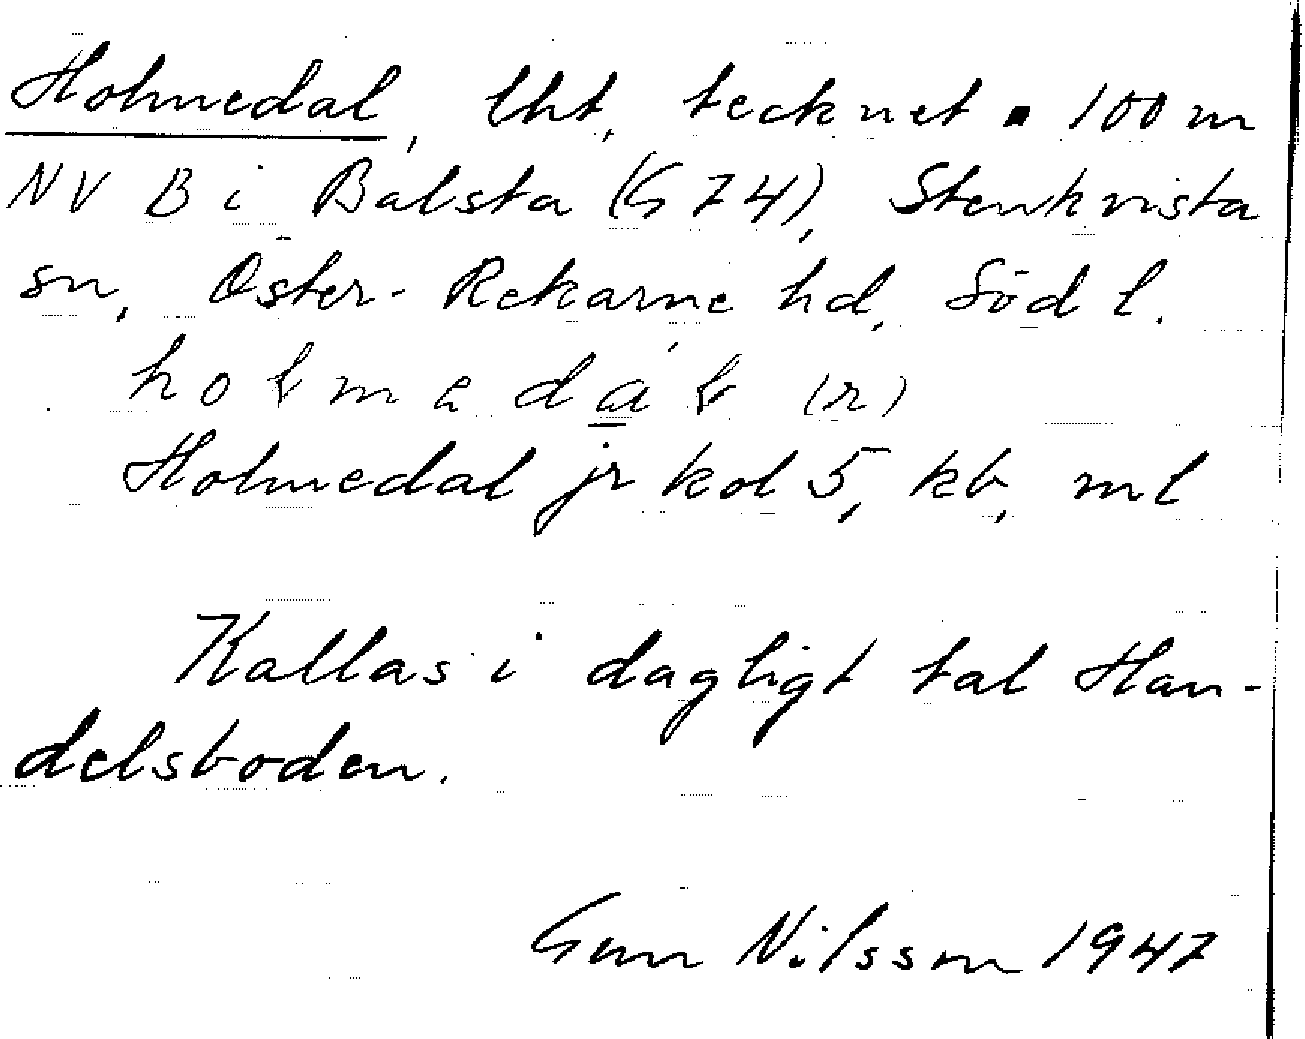 Holmedal, lht, tecknet ▪ 100 m
NV B i Balsta (G 74), Stenkvista
sn, Öster-Rekarne hd, Söd l.
holmedál (r)
Holmedal jr kol 5, kb, ml
Kallas i dagligt tal Han-
delsboden.
Gun Nilsson 1947